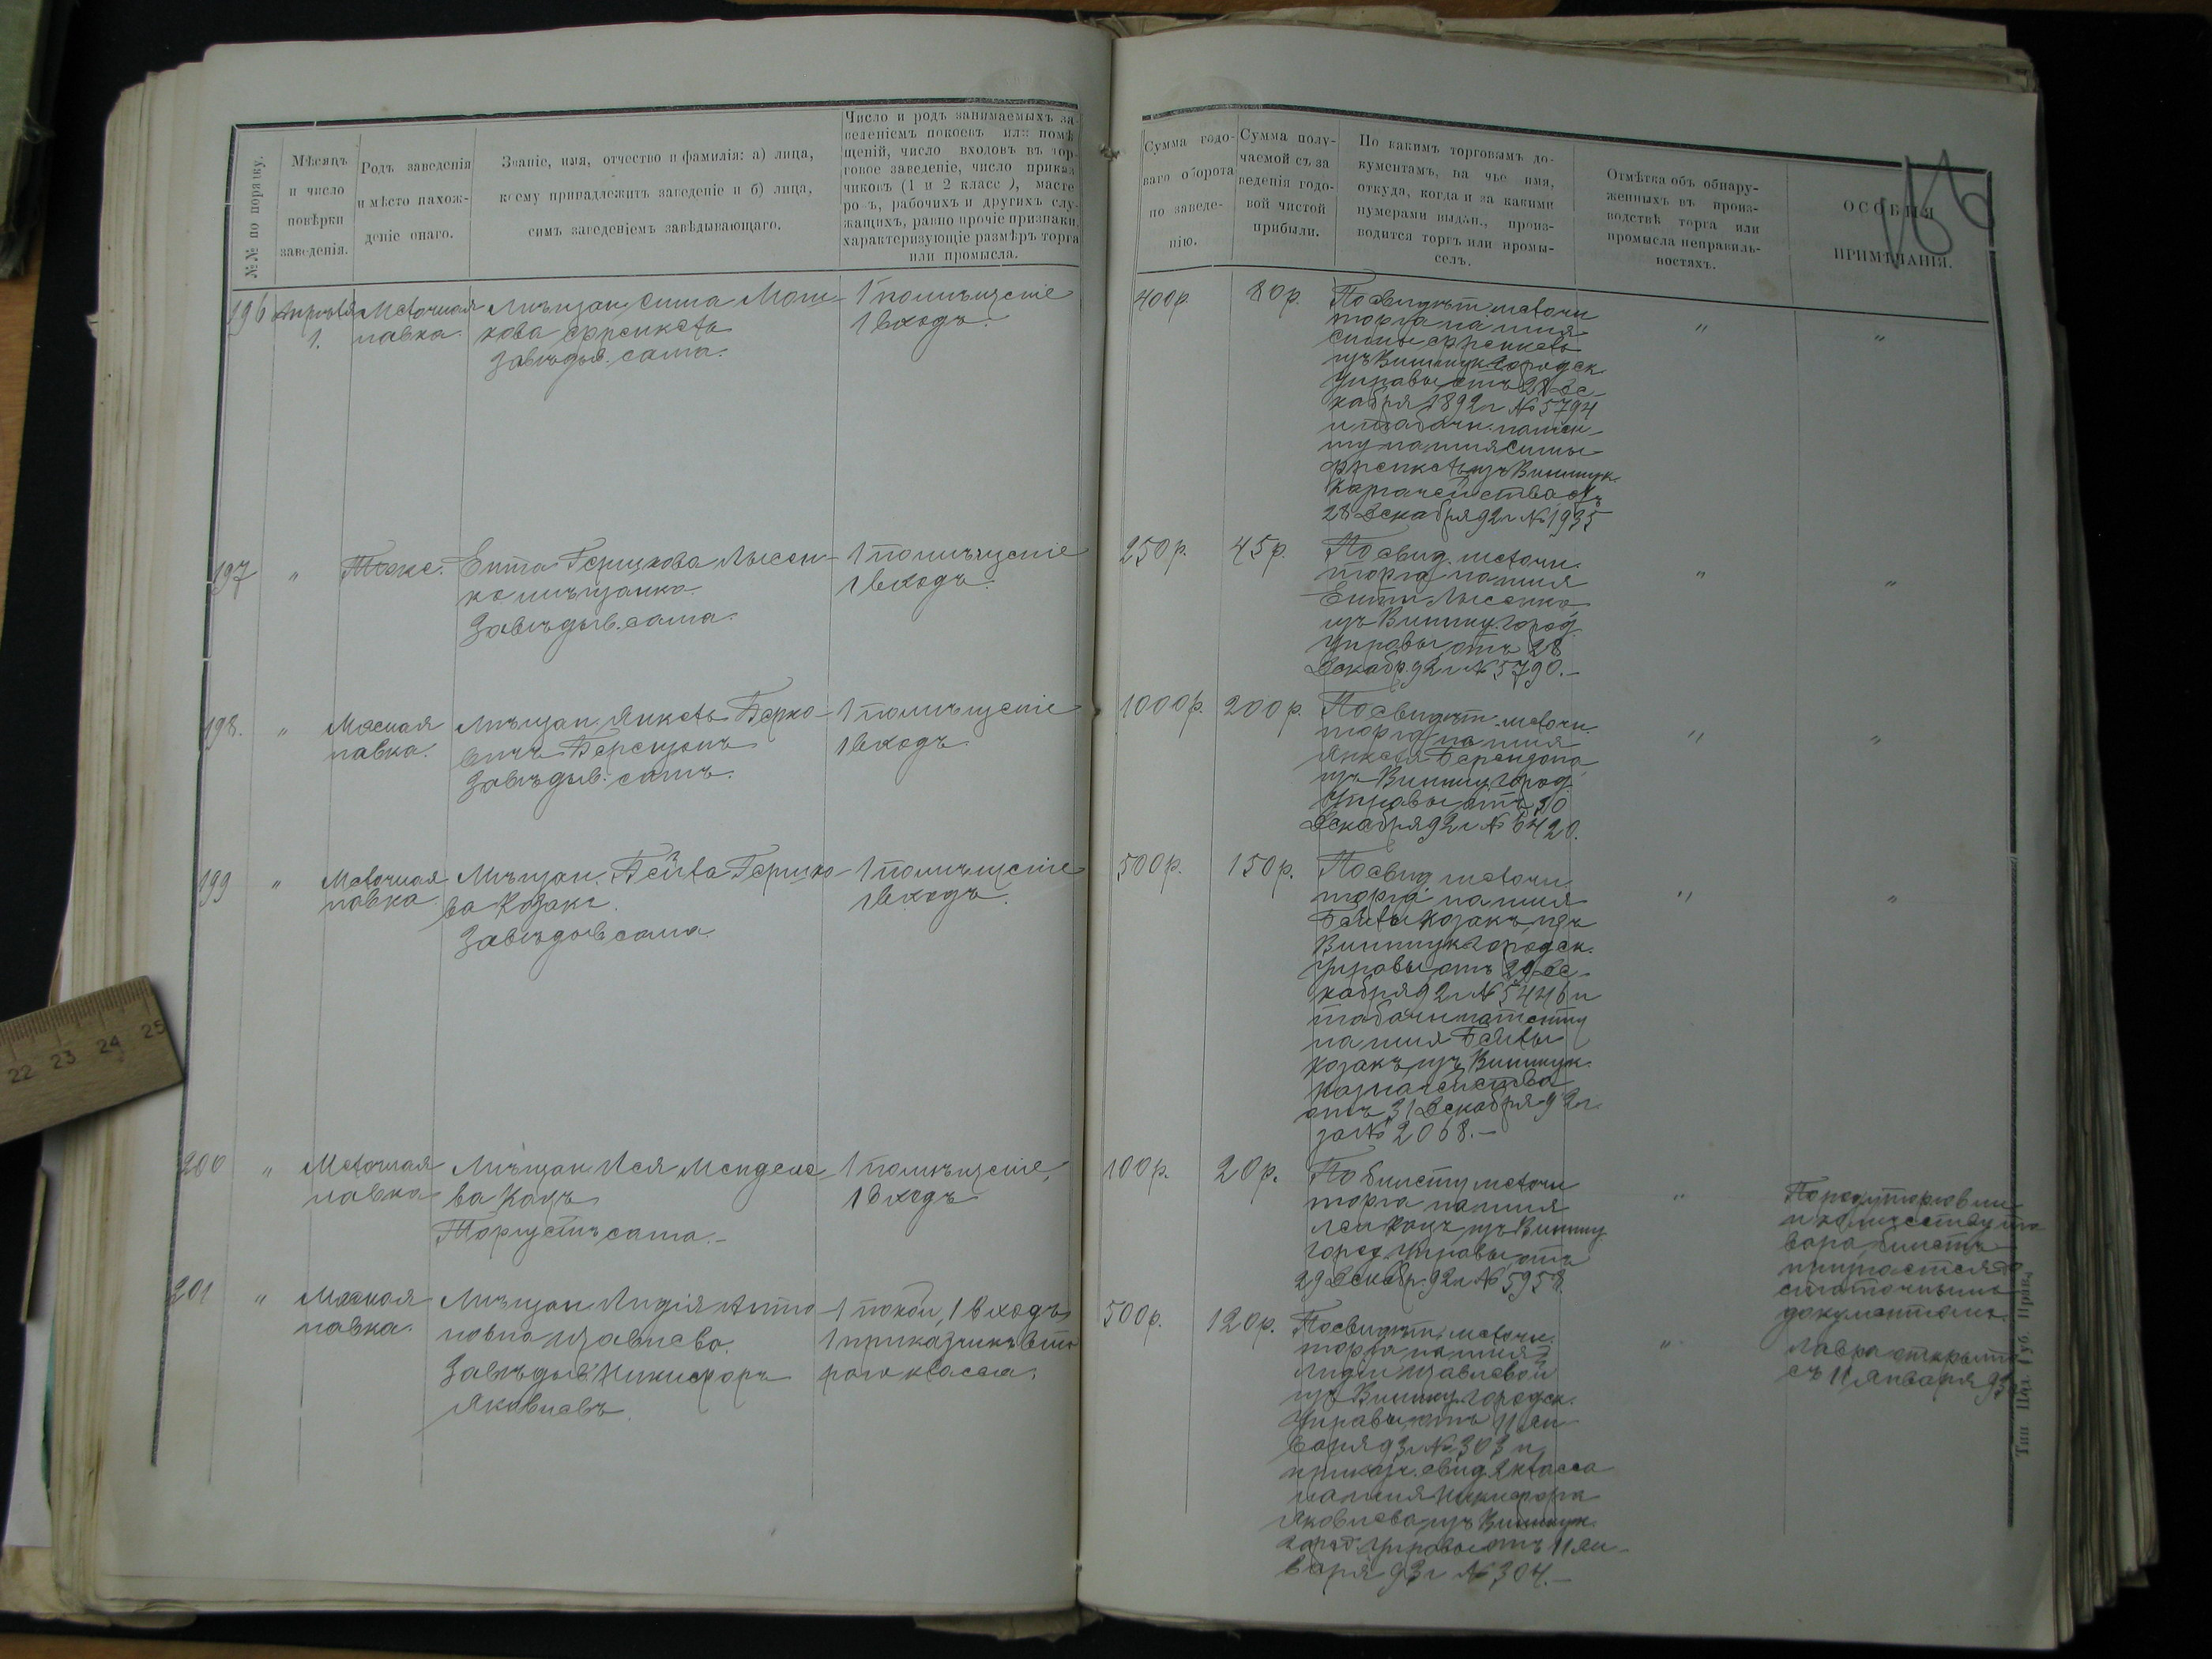 №№ по порядку.
Мѣсяцъ
и число
повѣрки
заведенія.
Родъ заведенія
и мѣсто нахож-
деніе онаго.
Званіе, имя, отчество и фамилія: а) лица,
коему принадлежитъ заведеніе и б) лица,
симъ заведеніемъ завѣдывающаго.
Число и родъ занимаемыхъ за-
веденіемъ покоевъ или помѣ
щеній, число входовъ въ тор-
говое заведеніе, число приказ
чиковъ (1 и 2 класс ), масте
ровъ, рабочихъ и другихъ слу-
жащихъ, равно прочіе признаки,
характеризующіе размѣръ торга
или промысла.
Сумма годо-
ваго оборота
по заведе-
нію.
Сумма полу-
чаемой съ за
веденія годо-
вой чистой
прибыли.
По какимъ торговымъ до-
кументамъ, на чье имя,
откуда, когда и за какими
нумерами выдан., произ-
водится торгъ или промы-
селъ.
Отмѣтка объ обнару-
женныхъ въ произ-
водствѣ торга или
промысла неправиль-
ностяхъ.
ОСОБЫЯ
ПРИМѢЧАНІЯ.
196 Апрѣля 1. Мелочная
лавка.
Мѣщан. Сима Мош-
кова Френкель
Завѣдыв. сама.
1 помѣщеніе
1 входъ.
400р. 80р.
По свидѣт. мелочн
торга на имя
Симы Френкель
изъ Винницк. Городск.
Управы отъ 28 Де-
кабря 1892 г № 5794
и табачн. патен-
ту на имя Симы
Френкель изъ Винницк.
Казначейства отъ
28 Декабря 92 г № 1935
" "
197 " Тоже.
Ента Гершкова Лысен-
ко мѣщанка.
Завѣдыв. сама.
1 помѣщеніе
1 входъ.
250р. 45р.
По свид. мелочн.
торга на имя
Енты Лысенко
изъ Винниц. Город.
Управы отъ 28
Декабр. 92 г № 5790.—
" "
198. " Мясная
лавка.
Мѣщан. Янкель Берко-
вичъ
Завѣдыв. самъ.
1 помѣщеніе
1 входъ.
1000р. 200р.
По свидѣт. мелочн.
торга на имя
Янкеля
изъ Винниц. Город.
Управы отъ 30
Декабря 92 г № 6420.
" "
199 " Мелочная
лавка
Мѣщан. Бейла Гершко-
ва Козакъ.
Завѣдыв сама.
1 помѣщеніе
1 входъ.
500р. 150р.
По свид мелочн.
торга на имя
Бейлы Козакъ изъ
Винницк. Городск.
Управы отъ 29 Де-
кабря 92 г № 5446 и
табачн патенту
на имя Бейлы
Козакъ изъ Винницк.
Казначейства
отъ 31 Декабря 92 г.
за № 2068.—
" "
200 " Мелочная
лавка
Мѣщан. Лея Менделе-
ва Кацъ
Торгуетъ сама.—
1 помѣщеніе,
1 входъ
100р. 20р.
По билету мелочн
торга на имя
Леи Кацъ изъ Винниц.
Город. Управы отъ
29 Декабр. 92 г № 5958.
"
По роду торговли
и количеству то
вара билетъ
признается до
статочнымъ
документомъ.
201 " Мясная
лавка.
Мѣщан Лидія Анто
новна
Завѣдыв. Никифоръ
Яковлевъ
1 покой, 1 входъ,
1 приказчикъ вто
рого класса.
500р. 120р.
По свидѣт. мелочн.
торга на имя
Лидіи
изъ Винниц. Городск.
Управы отъ 11 Ян-
варя 93 г № 303 и
приказч. свид. 2 класса
на имя Никифора
Яковлева изъ Винницк.
город. Управы отъ 11 Ян-
варя 93 г № 304.—
"
Лавка открыта
съ 11 Января 93
22 23 24 25